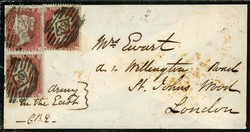 Mrs Ewart
Wellington Road
St. Johns Wood
London
Army
in the East